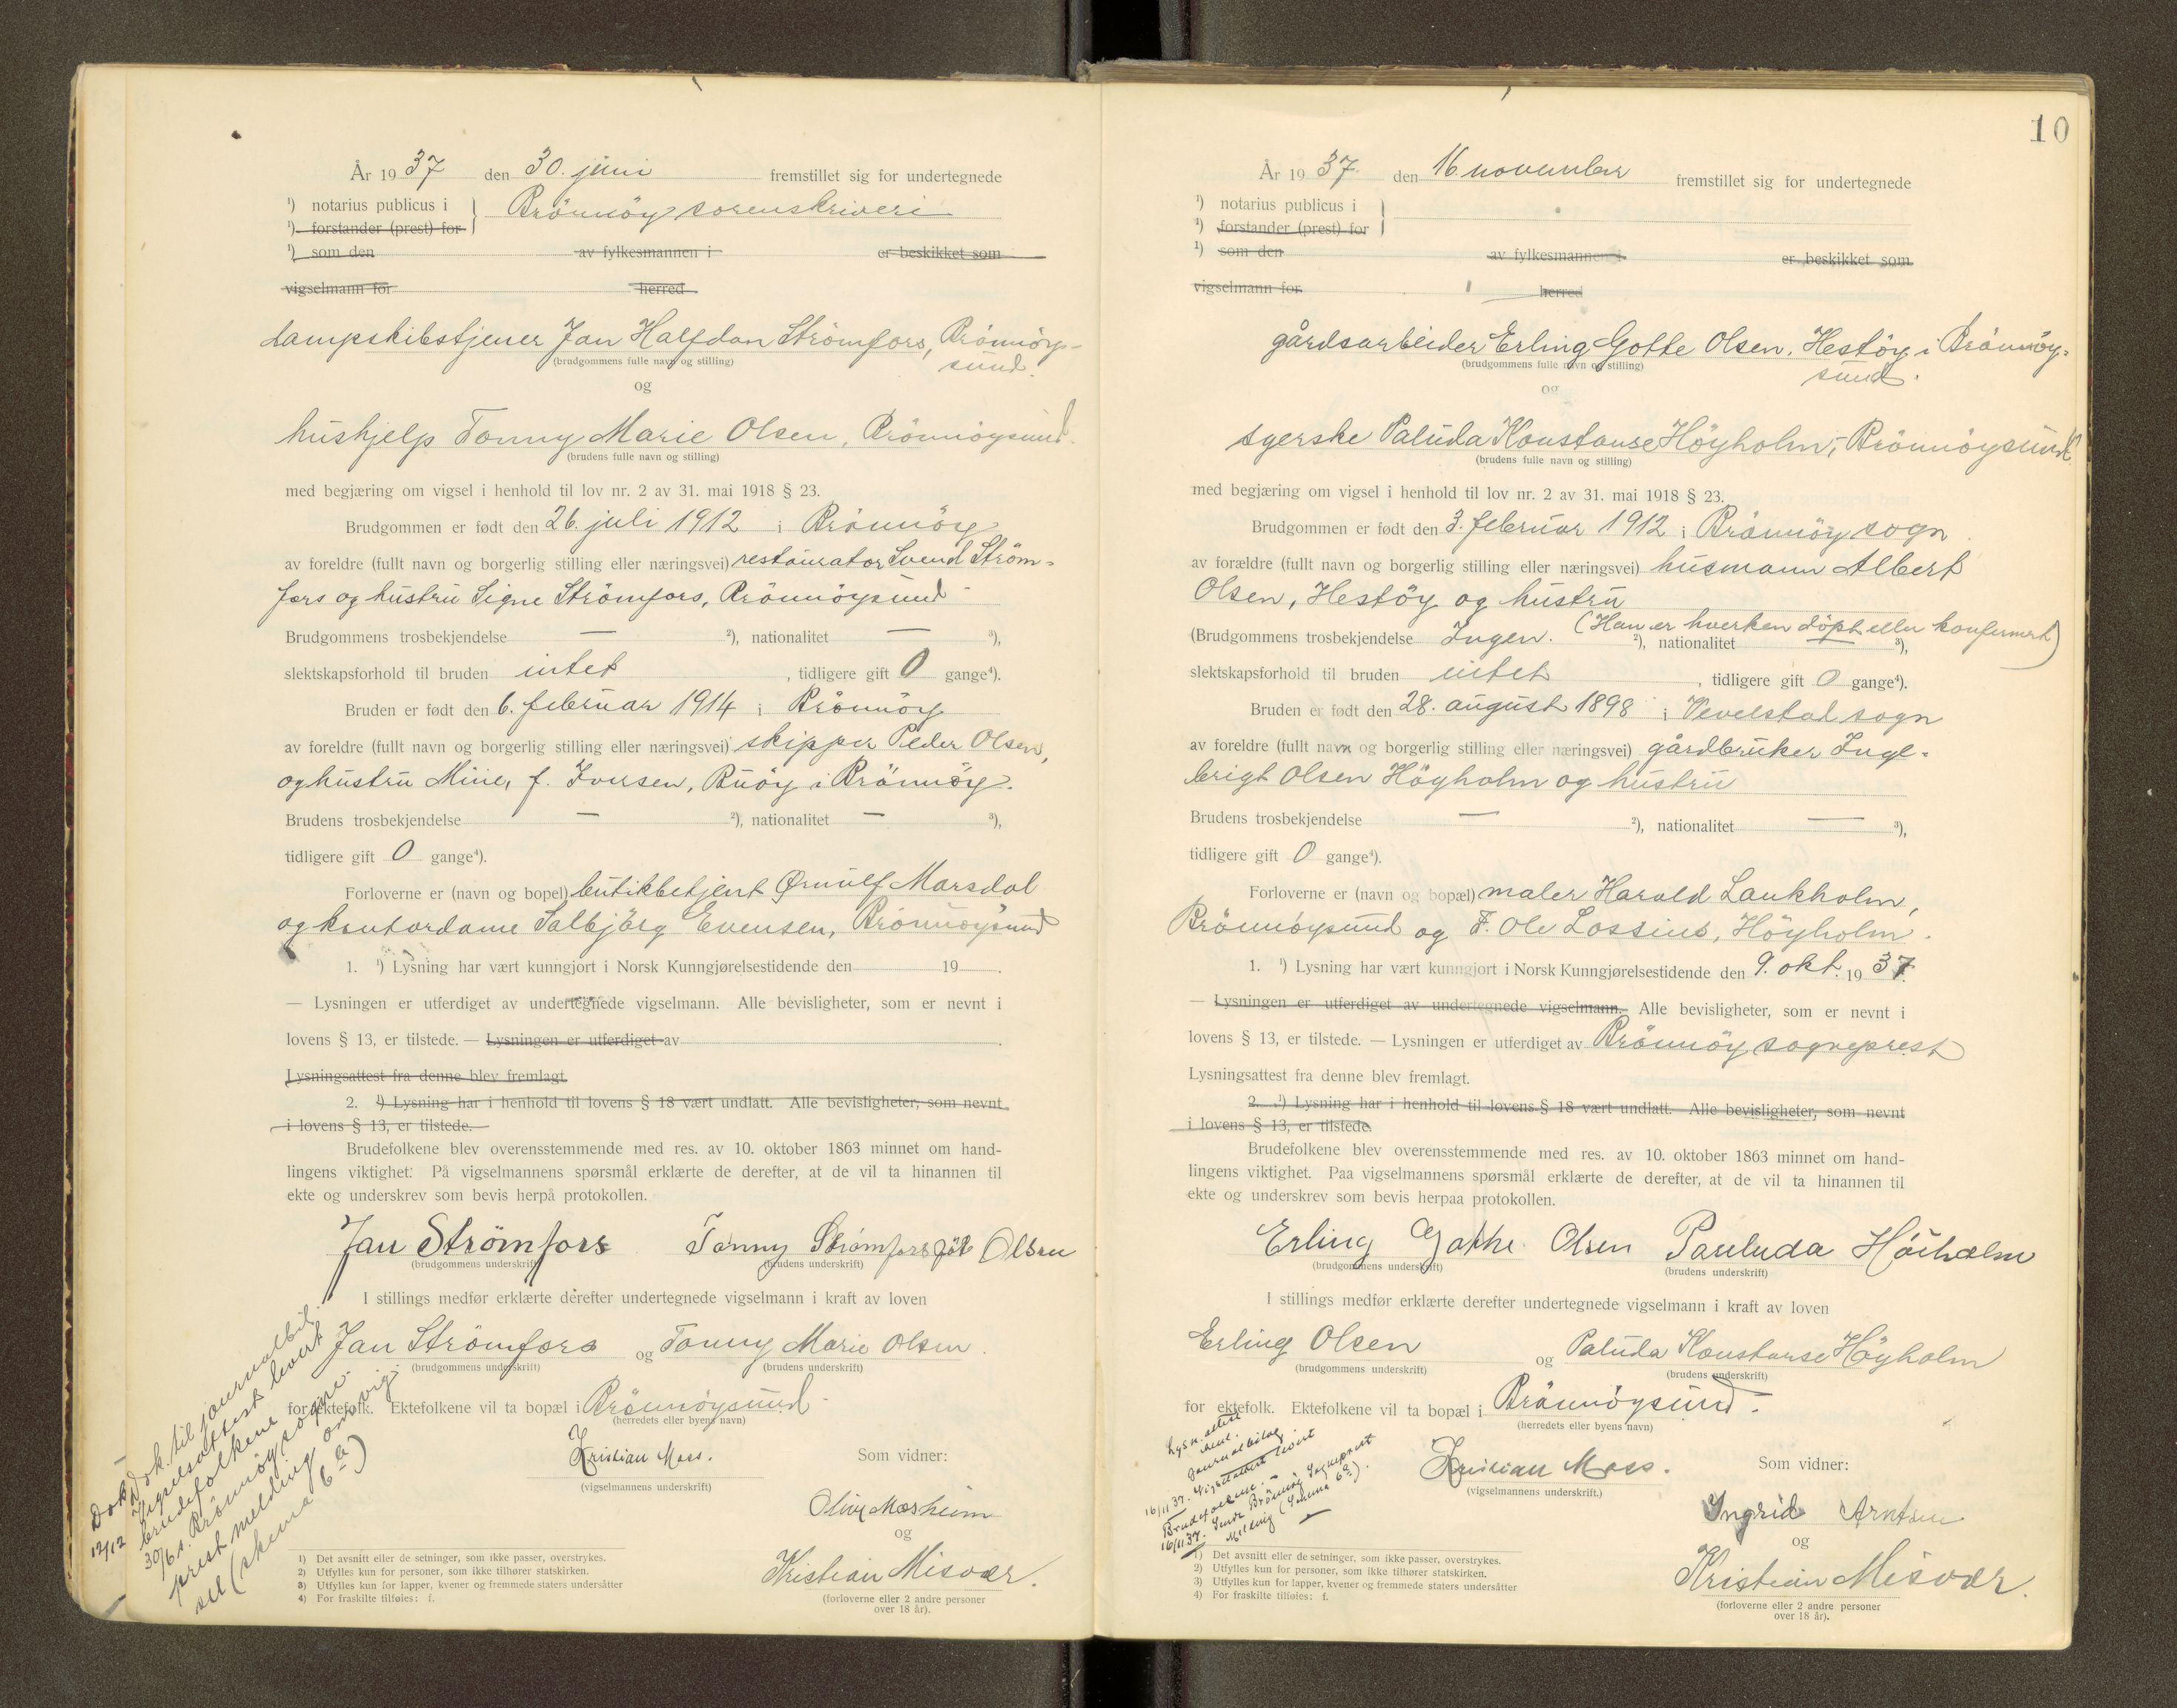 År 1937 den 30. juni fremstillet sig for undertegnede
¹) notarius publicus i } Brönnöy sorenskriveri
¹) forstander (prest) for
¹) som den av fylkesmannen i er beskikket som
vigselmann for herred
dampskibstjener Jan Halfdan Strömfors, Brönnöy-
(brudgommens fulle navn og stilling)
sund.
og
hushjelp Tonny Marie Olsen, Brönnöysund.
(brudens fulle navn og stilling)
med begjæring om vigsel i henhold til lov nr. 2 av 31. mai 1918 § 23.
Brudgommen er født den 26. juli 1912 i Brönnöy
av foreldre (fullt navn og borgerlig stilling eller næringsvei) restauratør Svend Ström-
fors og hustru Signe Strömfors, Brönnöysund
Brudgommens trosbekjendelse — ²), nationalitet — ³),
slektskapsforhold til bruden intet, tidligere gift 0 gange⁴).
Bruden er født den 6. februar 1914 i Brönnöy
av foreldre (fullt navn og borgerlig stilling eller næringsvei) skipper Peder Olsen,
og hustru Mine, f. Iversen, Buöy i Brönnöy.
Brudens trosbekjendelse — ²), nationalitet — ³),
tidligere gift 0 gange⁴).
Forloverne er (navn og bopel) butikbetjent Ørnulf Marsdal
og kontordame Salbjörg Evensen, Brönnöysund
1. ¹) Lysning har vært kunngjort i Norsk Kunngjørelsestidende den 19 .
— Lysningen er utferdiget av undertegnede vigselmann. Alle bevisligheter, som er nevnt i
lovens § 13, er tilstede. — Lysningen er utferdiget av .
Lysningsattest fra denne blev fremlagt.
2. ¹) Lysning har i henhold til lovens § 18 vært undlatt. Alle bevisligheter, som nevnt
i lovens § 13, er tilstede.
Brudefolkene blev overensstemmende med res. av 10. oktober 1863 minnet om hand-
lingens viktighet. På vigselmannens spørsmål erklærte de derefter, at de vil ta hinannen til
ekte og underskrev som bevis herpå protokollen.
Jan Strömfors Tonny Strömfors föt Olsen
(brudgommens underskrift) (brudens underskrift)
I stillings medfør erklærte derefter undertegnede vigselmann i kraft av loven
Jan Strömfors og Tonny Marie Olsen.
(brudgommens underskrift) (brudens underskrift)
for ektefolk. Ektefolkene vil ta bopæl i Brönnöysund.
(herredets eller byens navn)
Kristian Moss. Som vidner:
(vigselmannens underskrift)
Oliny Mosheim
og
Kristian Misvær.
(forloverne eller 2 andre personer
over 18 år).
Dok. til journalbil.
12/12 Vigselsattest levert
brudefolkene
30/6 s. Brönnöy sogne-
prest melding om vig-
sel (skema 6 a)
1) Det avsnitt eller de setninger, som ikke passer, overstrykes.
2) Utfylles kun for personer, som ikke tilhører statskirken.
3) Utfylles kun for lapper, kvener og fremmede staters undersåtter
4) For fraskilte tilføies: f.
10
År 1937. den 16. november fremstillet sig for undertegnede
¹) notarius publicus i }
¹) forstander (prest) for
¹) som den av fylkesmannen i er beskikket som
vigselmann for herred
gårdsarbeider Erling Gotte Olsen, Hestöy i Brönnöy-
(brudgommens fulle navn og stilling)
sund.
og
syerske Paluda Konstanse Höyholm, Brönnöysund.
(brudens fulle navn og stilling)
med begjæring om vigsel i henhold til lov nr. 2 av 31. mai 1918 § 23.
Brudgommen er født den 3. februar 1912 i Brönnöy sogn
av forældre (fullt navn og borgerlig stilling eller næringsvei) husmann Albert
Olsen, Hestöy og hustru
(Han er hverken döpt eller konfirmert)
(Brudgommens trosbekjendelse Ingen. ²), nationalitet — ³),
slektskapsforhold til bruden intet, tidligere gift 0 gange⁴).
Bruden er født den 28. august 1898 i Vevelstad sogn
av foreldre (fullt navn og borgerlig stilling eller næringsvei) gårdbruker Inge-
brigt Olsen Höyholm og hustru
Brudens trosbekjendelse — ²), nationalitet — ³),
tidligere gift 0 gange⁴).
Forloverne er (navn og bopæl) maler Harald Laukholm,
Brönnöysund og F. Ole Lossius, Höyholm.
1. ¹) Lysning har vært kunngjort i Norsk Kunngjørelsestidende den 9. okt. 1937.
— Lysningen er utferdiget av undertegnede vigselmann. Alle bevisligheter, som er nevnt i
lovens § 13, er tilstede. — Lysningen er utferdiget av Brönnöy sogneprest
Lysningsattest fra denne blev fremlagt.
2. ¹) Lysning har i henhold til lovens § 18 vært undlatt. Alle bevisligheter, som nevnt
i lovens § 13, er tilstede.
Brudefolkene blev overensstemmende med res. av 10. oktober 1863 minnet om hand-
lingens viktighet. Paa vigselmannens spørsmål erklærte de derefter, at de vil ta hinannen til
ekte og underskrev som bevis herpaa protokollen.
Erling Gotte Olsen Pauluda Höiholm
(brudgommens underskrift) (brudens underskrift)
I stillings medfør erklærte derefter undertegnede vigselmann i kraft av loven
Erling Olsen og Paluda Konstanse Höyholm
(brudgommens underskrift) (brudens underskrift)
for ektefolk. Ektefolkene vil ta bopæl i Brönnöysund.
(herredets eller byens navn)
Kristian Moss. Som vidner:
(vigselmannens underskrift.)
Ingrid Arntsen
og
Kristian Misvær.
(forloverne eller 2 andre personer
over 18 år).
Lysn. attest
journalbilag
16/11 37. Vigselattest levert
Brudefolkene.
16/11 37. Sendt Brönnöy Sogneprest
Melding (Skema 6a).
1) Det avsnitt eller de setninger, som ikke passer, overstrykes.
2) Utfylles kun for personer, som ikke tilhører statskirken.
3) Utfylles kun for lapper, kvener og fremmede staters undersåtter
4) For fraskilte tilføies: f.